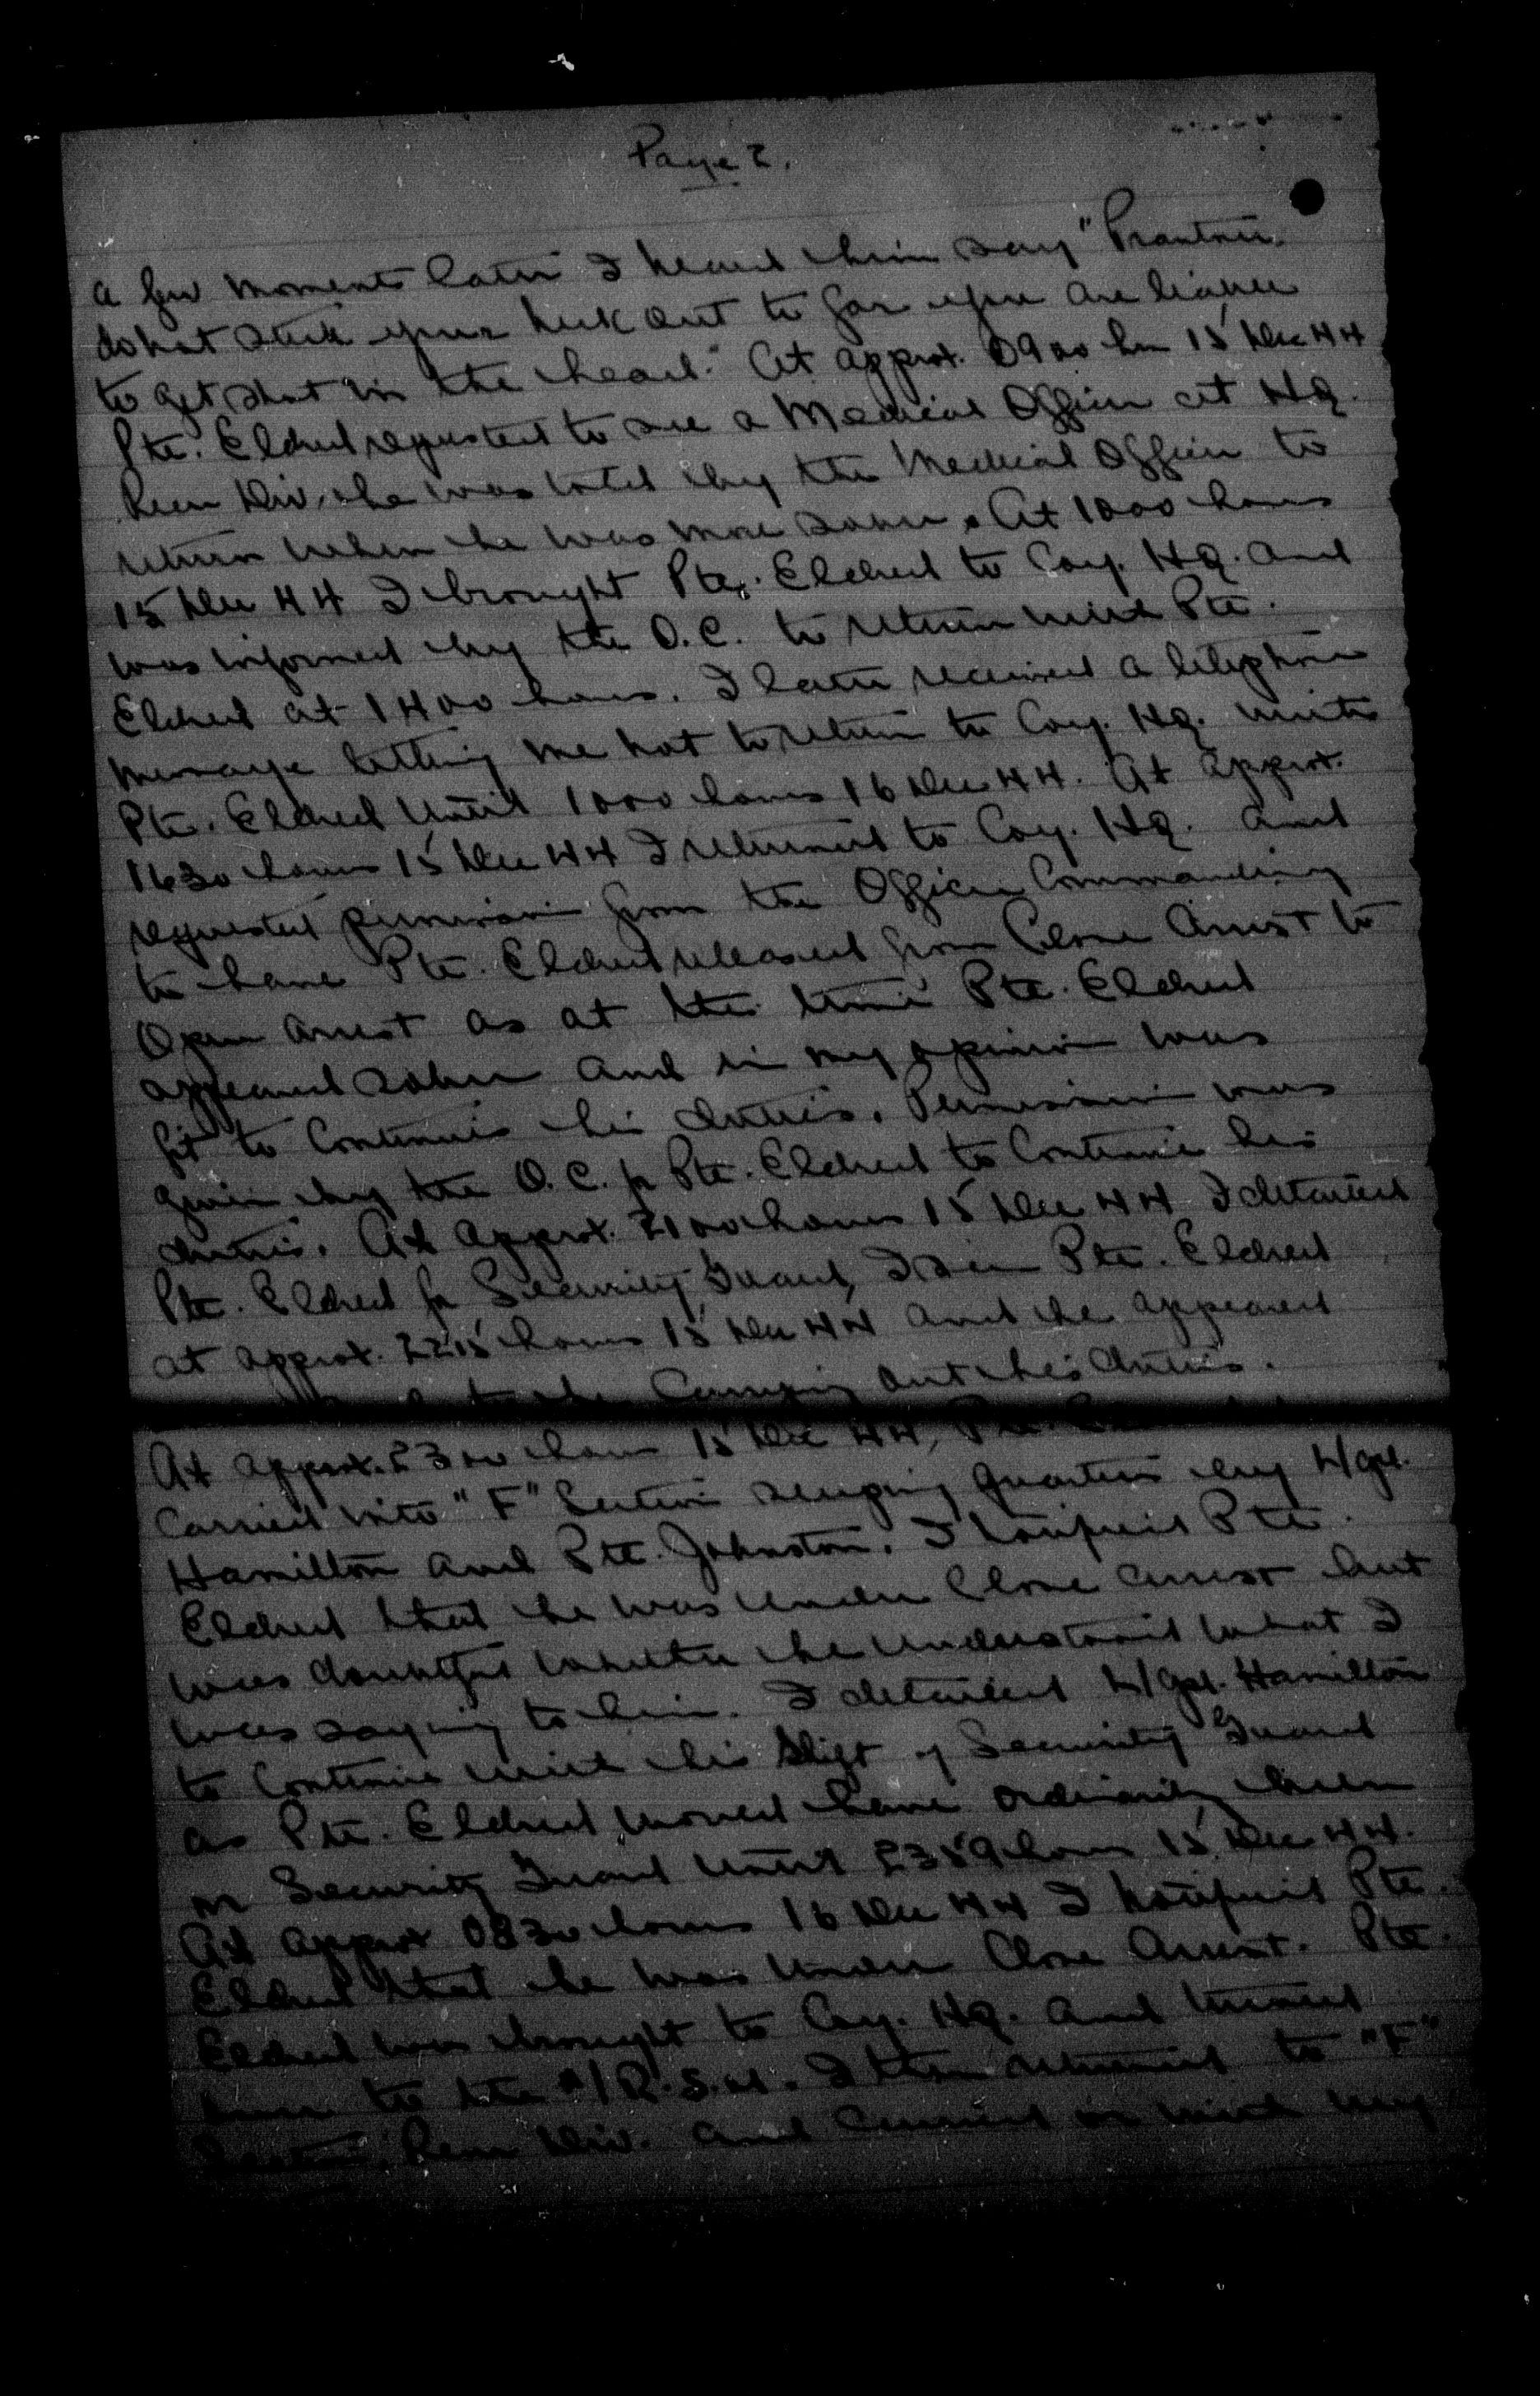 Page 2.
a few moments later I heard him say "Prantner
do not stick your neck out to far you are liable
to get shot in the head." At approx. 0900 hrs 15 Dec 44
Pte. Eldred requested to see a Medical Officer at Hq.
Rear Div, he was told by the Medical Officer to
return when he was more sober. At 1000 hours
15 Dec 44 I brought Pte. Eldred to Coy. Hq. and
was informed by the O.C. to return with Pte.
Eldred at 1400 hours. I later received a telephone
message telling me not to return to Coy. Hq. with
Pte. Eldred until 1000 hours 16 Dec 44. At approx.
1630 hours 15 Dec 44 I returned to Coy. Hq. and
requested permission from the Officer Commanding
to have Pte. Eldred released from Close Arrest to
Open Arrest as at the time Pte. Eldred
appeared sober and in my opinion was
fit to continue his duties. Permission was
given by the O.C. for Pte. Eldred to continue his
duties. At approx. 2100 hours 15 Dec 44 I detailed
Pte. Eldred for Security Guard, I seen Pte. Eldred
at approx. 2215 hours 15 Dec 44 and he appeared
to be carrying out his duties.
At approx. 2300 hours 15 Dec 44, Pte.
carried into "F" Section sleeping quarters by L/Cpl.
Hamilton and Pte. Johnston. I notified Pte.
Eldred that he was under Close Arrest but
was doubtful whether he understood what I
was saying to him. I detailed L/Cpl. Hamilton
to continue with his shift of Security Guard
as Pte. Eldred would have ordinarily been
on Security Guard until 2359 hours 15 Dec 44.
At approx 0830 hours 16 Dec 44 I notified Pte.
Eldred that he was under Close Arrest. Pte.
Eldred was brought to Coy. Hq. and turned
over to the A/R.S.M. I then returned to "F"
Section, Rear Div. and carried on with my